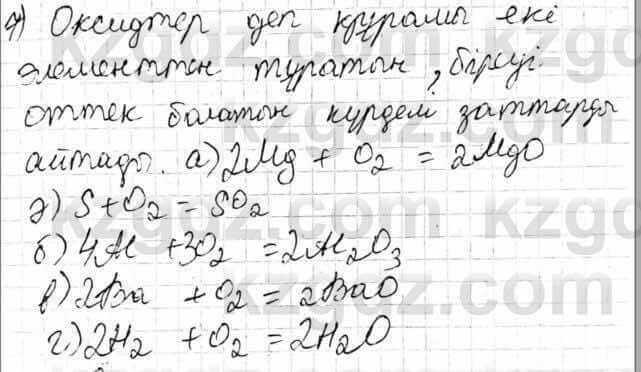 4) Оксидтер деп құрамы екі
элементтен тұратын, біреуі
оттек болатын күрделі заттарды
айтады. а) 2Mg + O₂ = 2MgO
ә) S + O₂ = SO₂
б) 4Al + 3O₂ = 2Al₂O₃
в) 2Ba + O₂ = 2BaO
г) 2H₂ + O₂ = 2H₂O